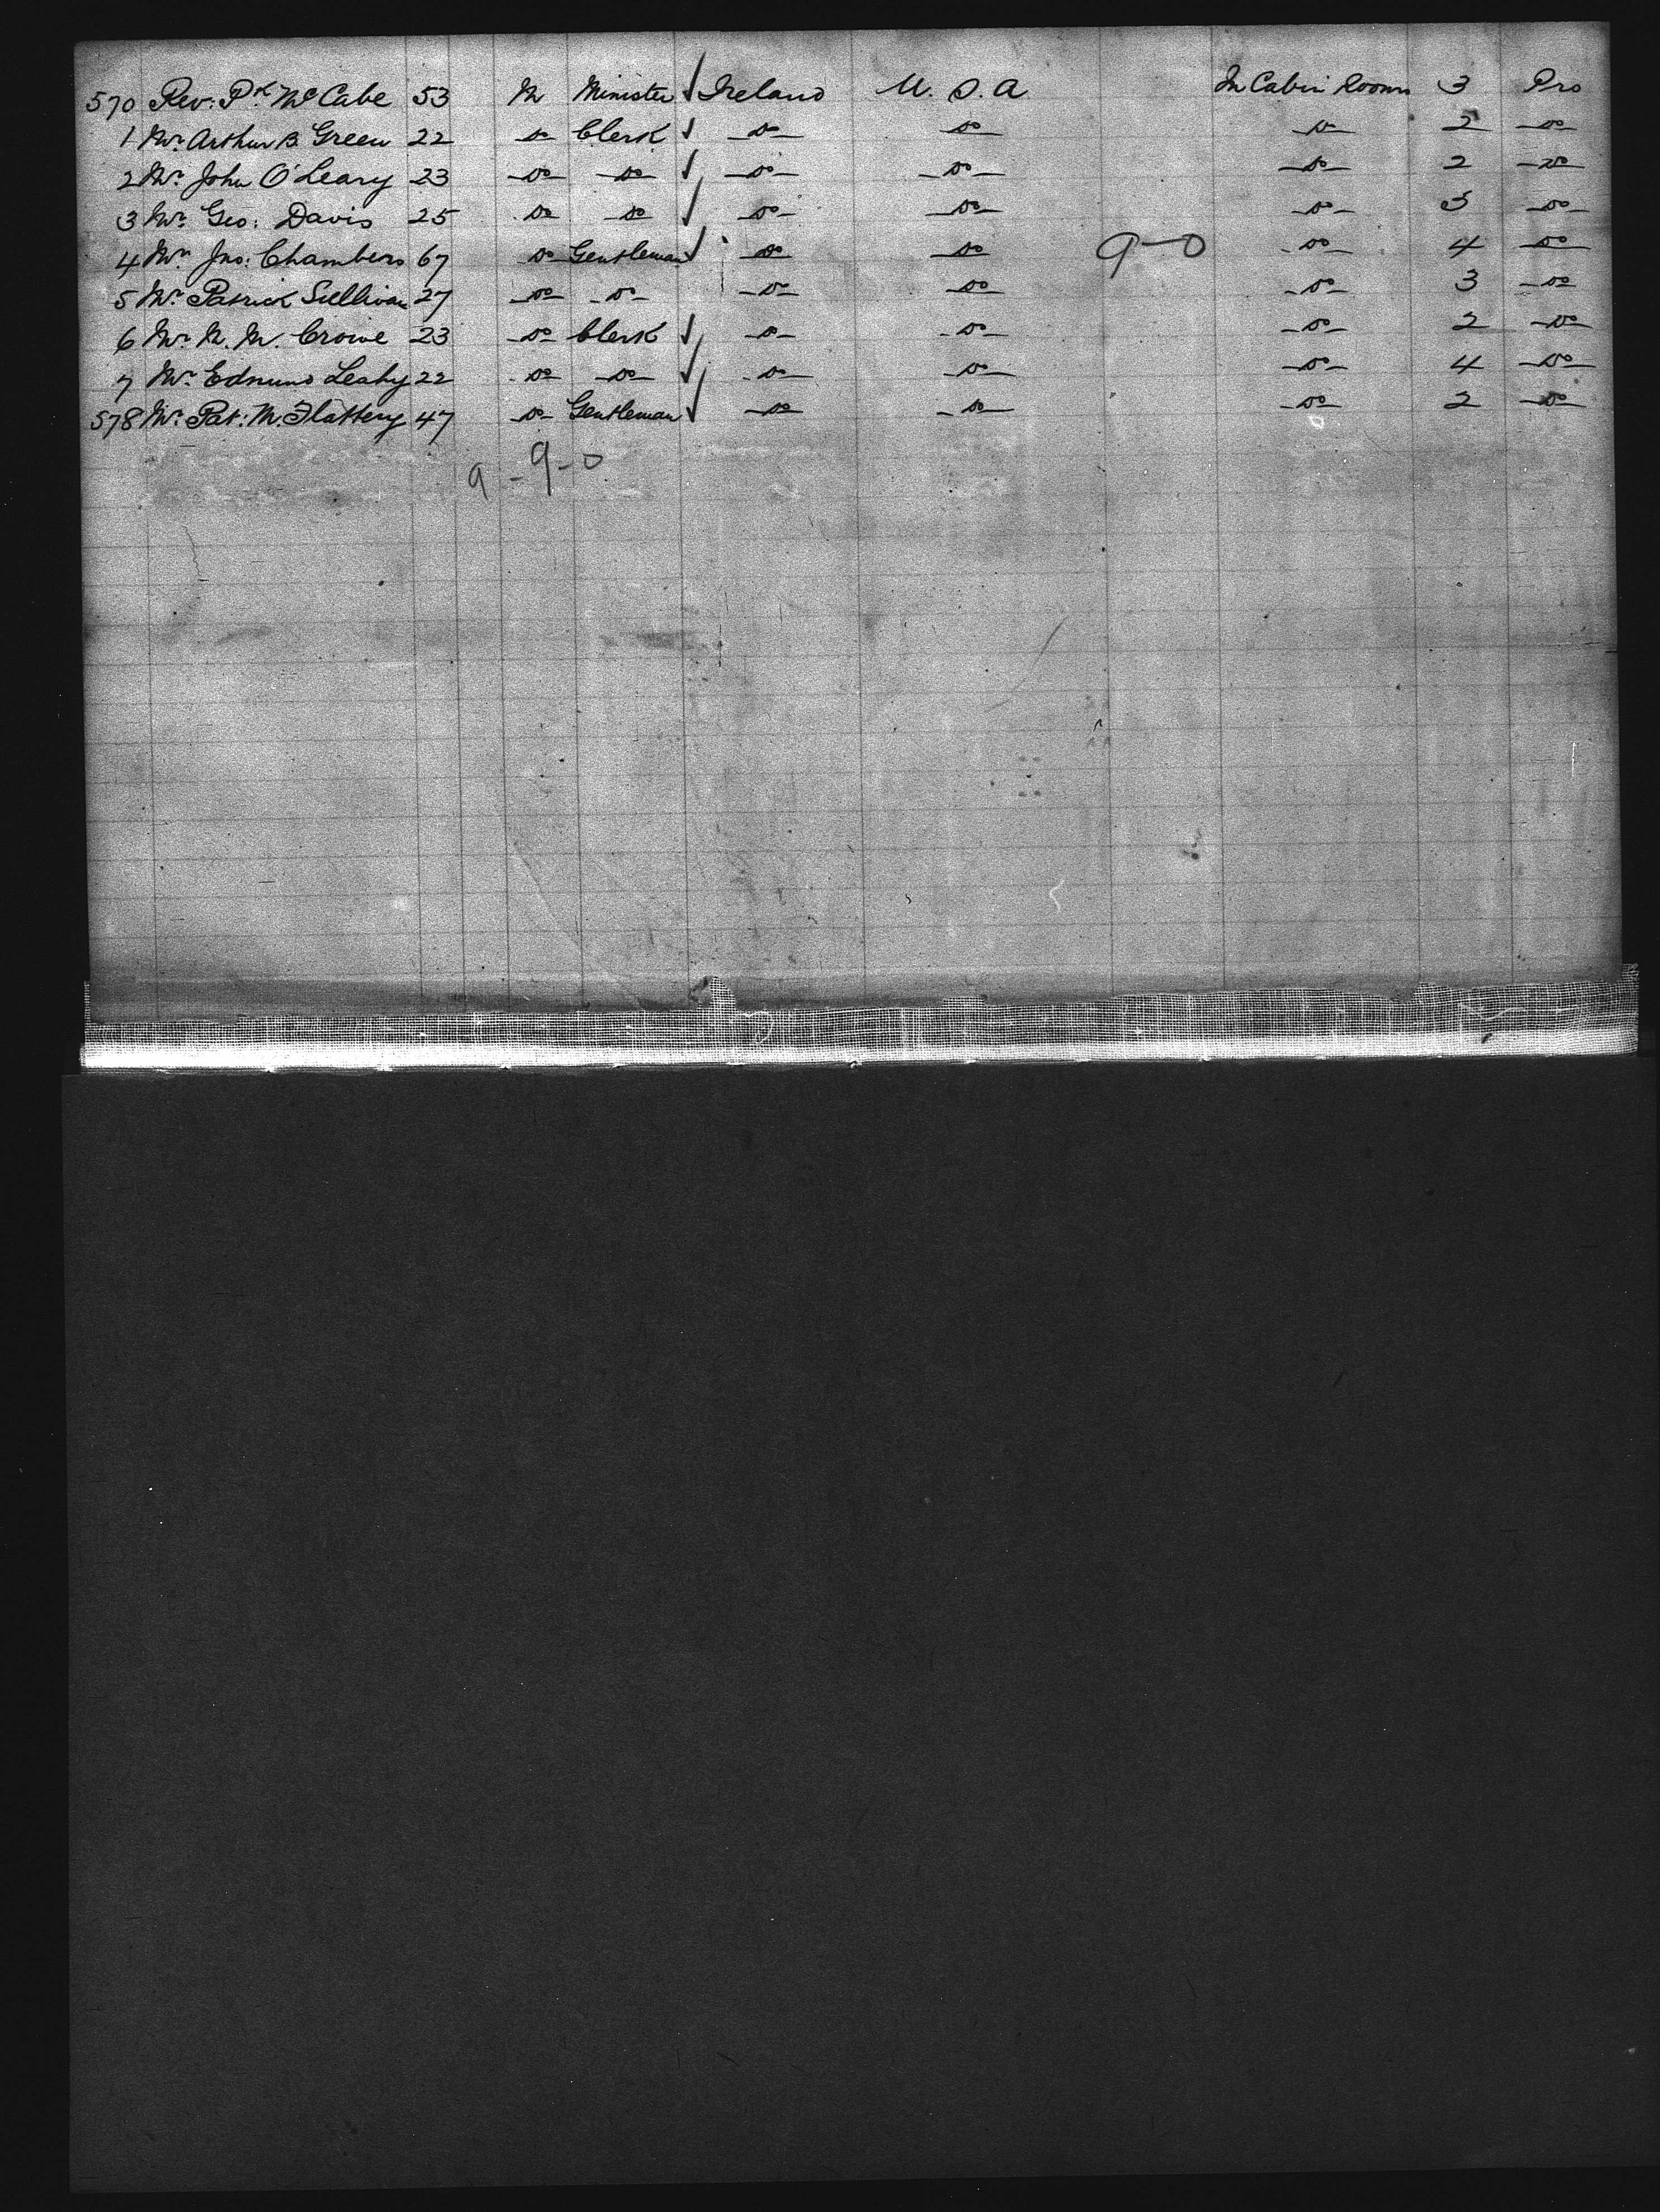 570 Rev: Pk. McCabe 53 M Minister ✓ Ireland U.S.A In Cabin Rooms 3 Pro
1 Mr. Arthur B. Green 22 do Clerk ✓ do do do 2 do
2 Mr. John O'Leary 23 do do ✓ do do do 2 do
3 Mr. Geo: Davis 25 do do ✓ do do do 3 do
4 Mr. Jno: Chambers 67 do Gentleman ✓ do do 9-0 do 4 do
5 Mr. Patrick Sullivan 27 do do do do do 3 do
6 Mr. M. Crowe 23 do Clerk ✓ do do do 2 do
7 Mr. Edmund Leahy 22 do do ✓ do do do 4 do
578 Mr. Pat: M. Flattery 47 do Gentleman ✓ do do do 2 do
9-9-0